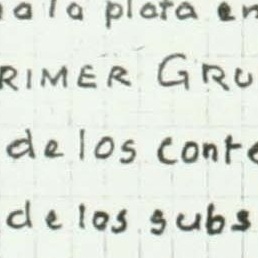 a la plata en
RIMER GRU
de los conte
de los subs